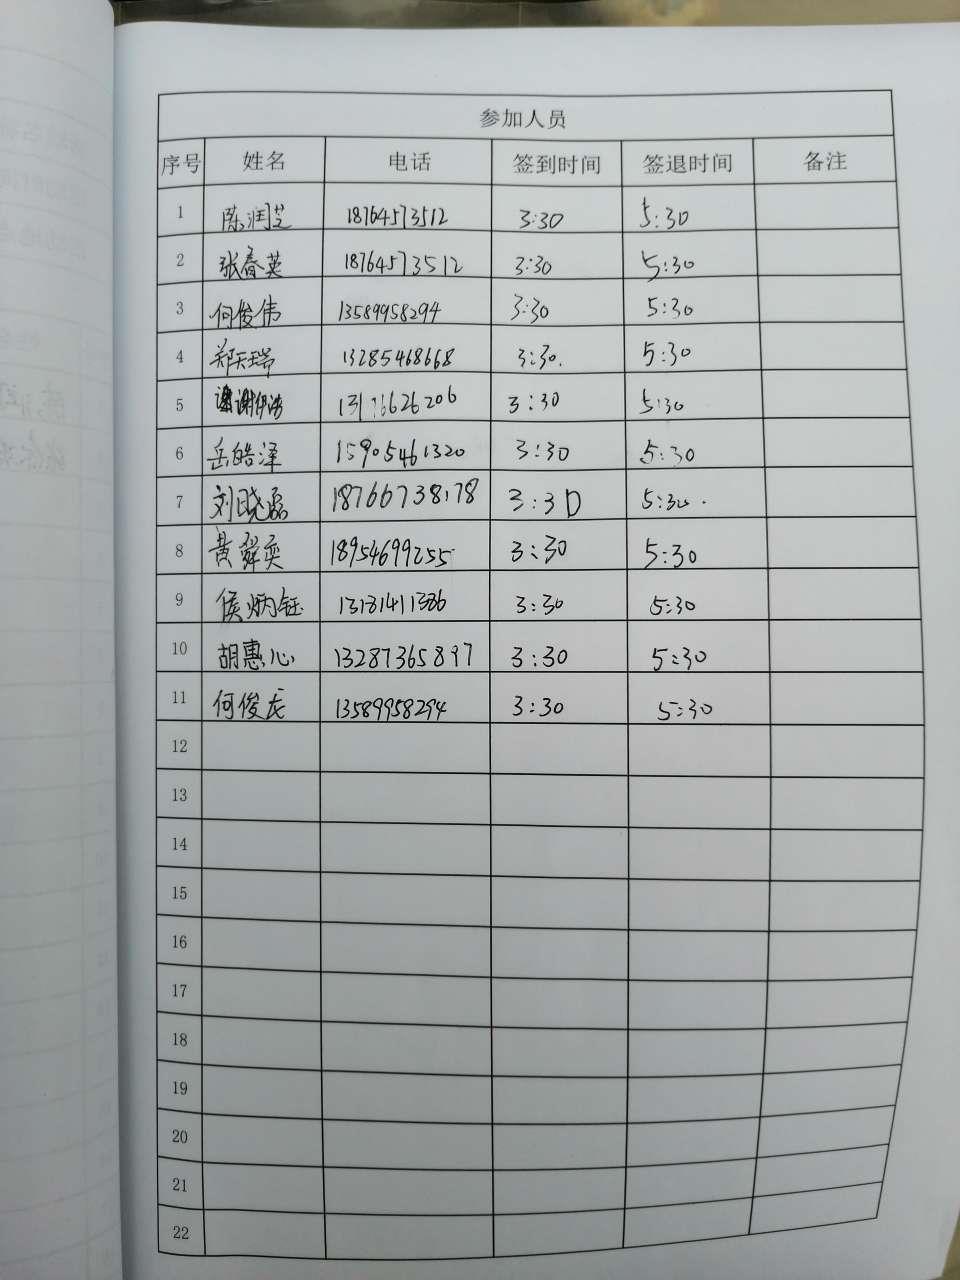 参加人员
序号 姓名 电话 签到时间 签退时间 备注
1 陈润芝 18764573512 3:30 5:30
2 张春英 18764573512 3:30 5:30
3 何俊伟 13589958294 3:30 5:30
4 郑天瑞 13285468668 3:30. 5:30
5 谢伊浩 3:30 5:30
6 岳皓泽 15905461320 3:30 5:30
7 刘晓磊 18766738178 3:30 5:30.
8 黄舜奕 18954699255 3:30 5:30
9 侯炳钰 13181411386 3:30 5:30
10 胡惠心 13287365897 3:30 5:30
11 何俊龙 13589958294 3:30 5:30
12
13
14
15
16
17
18
19
20
21
22